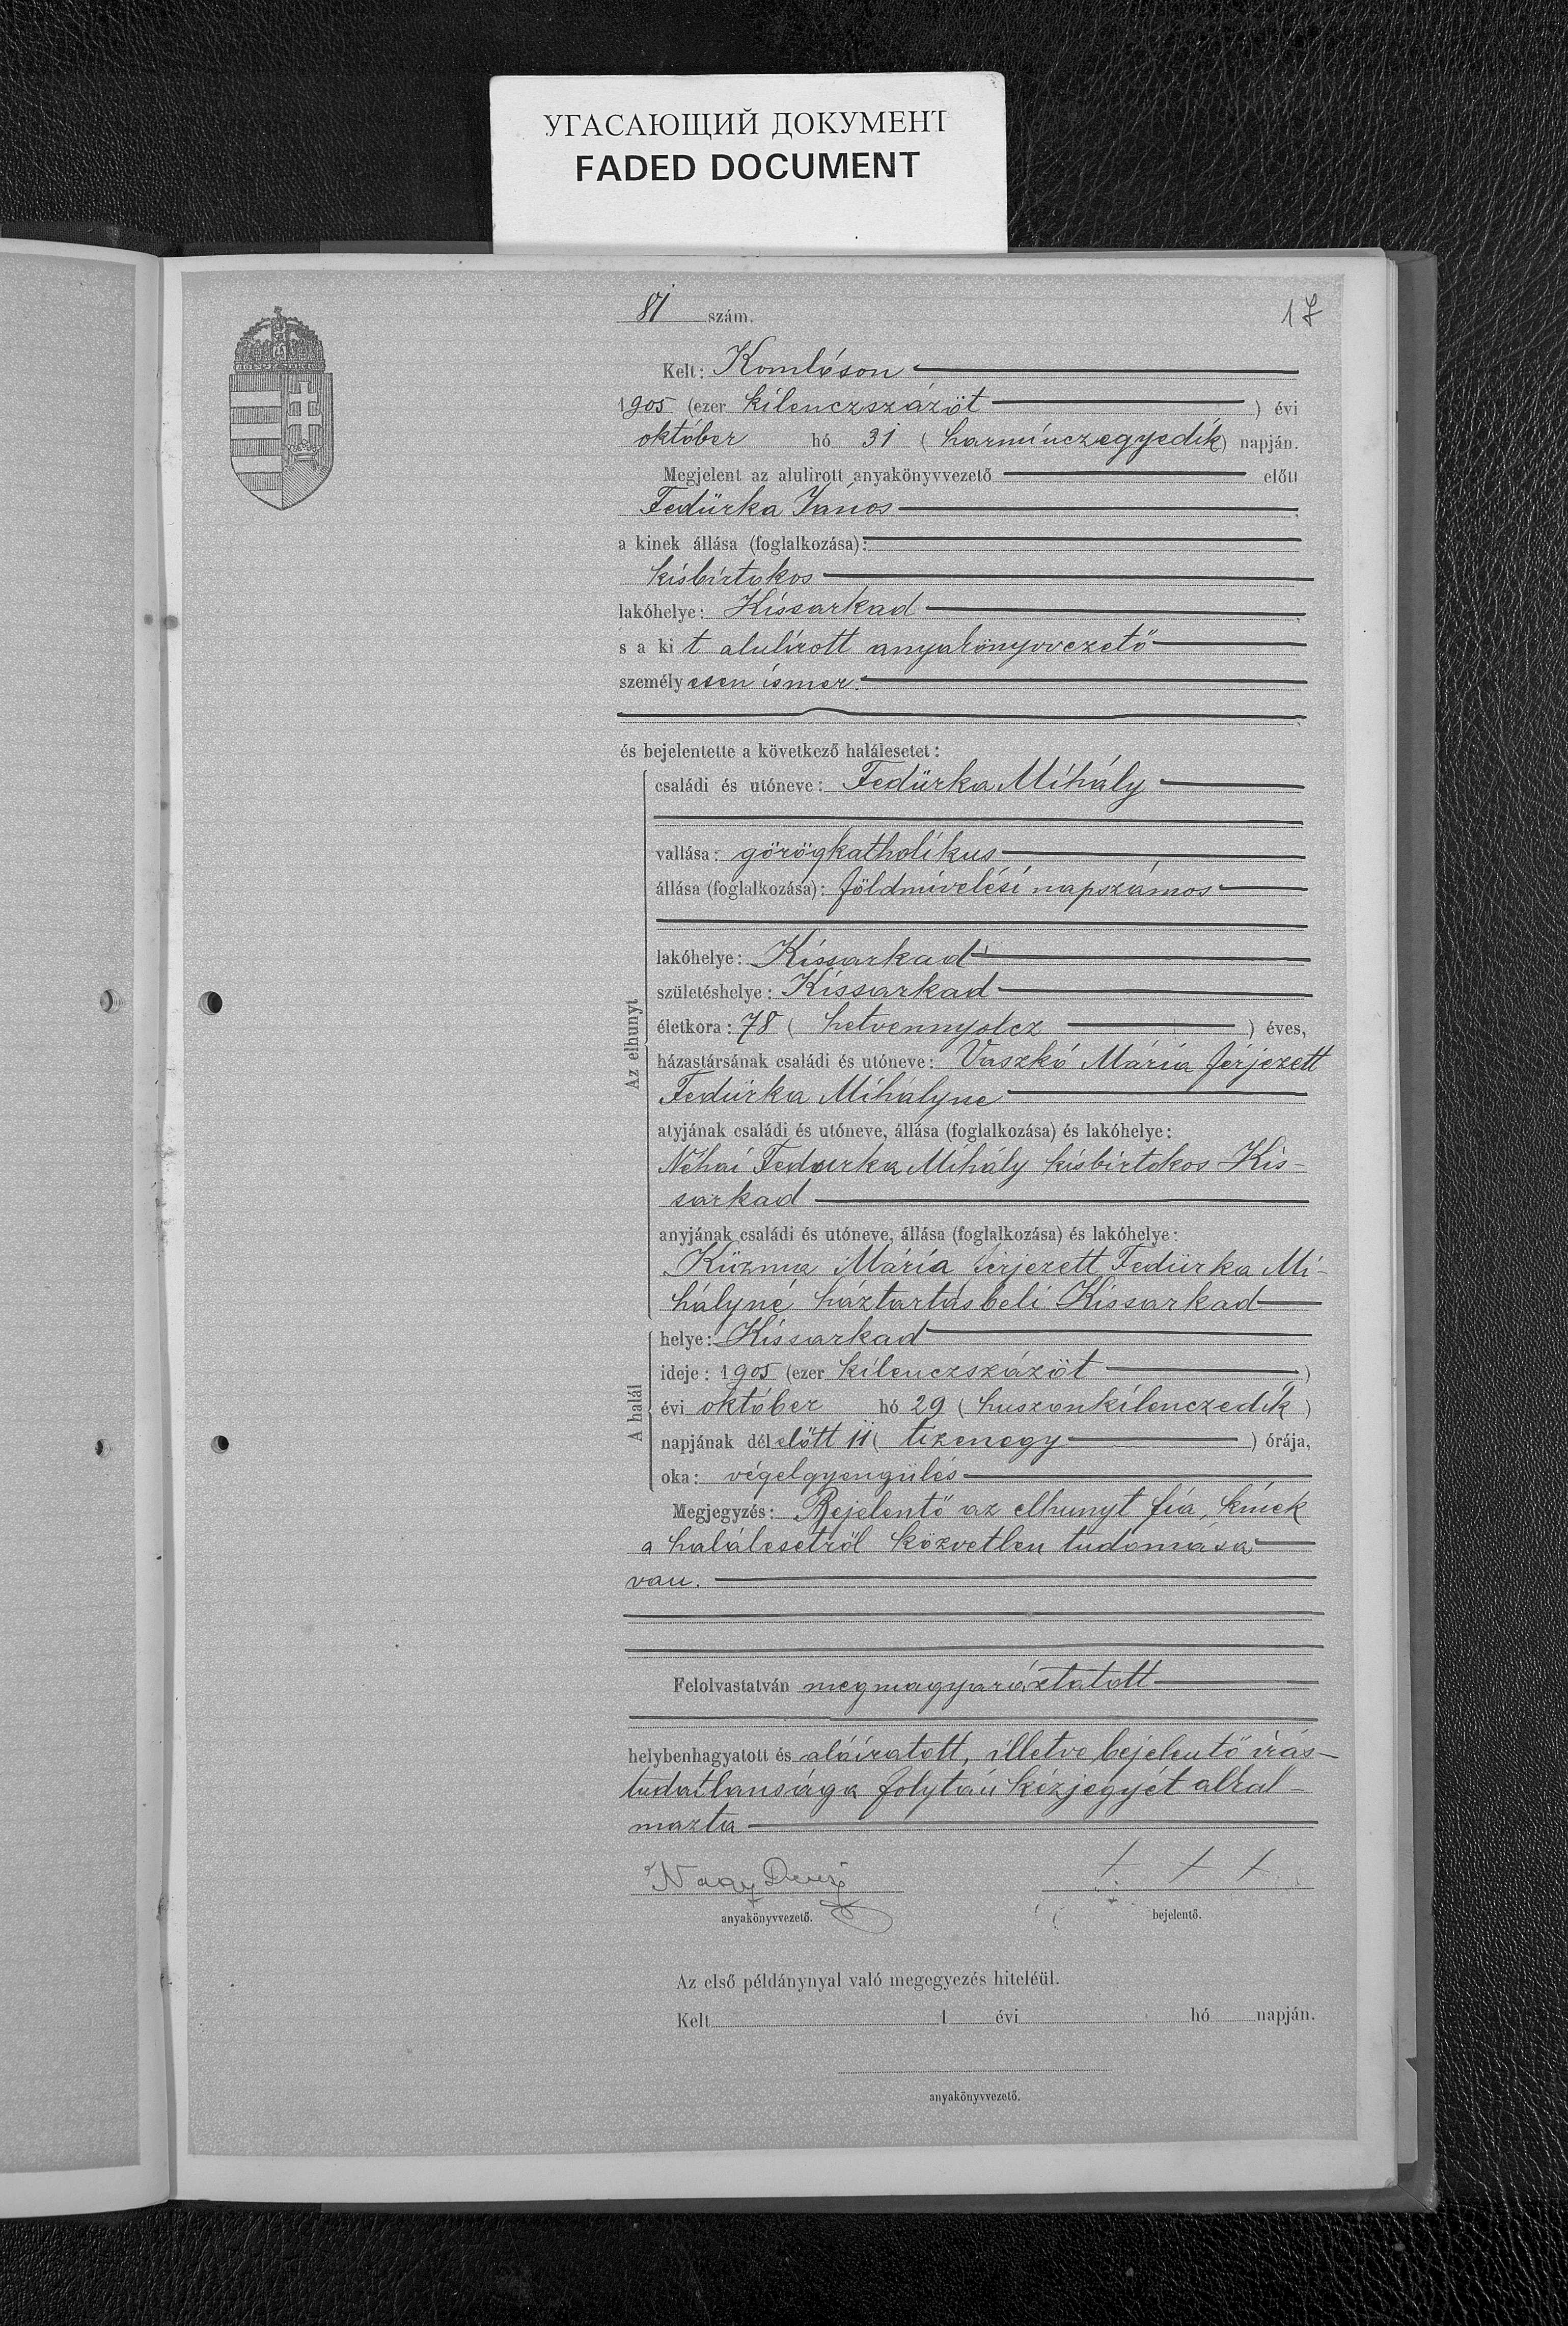 УГАСАЮЩИЙ ДОКУМЕНТ
FADED DOCUMENT
81 szám.
17
Kelt: Komlóson
1905 (ezer kilenczszázöt ) évi
október hó 31 (harminczegyedik) napján.
Megjelent az alulirott anyakönyvvezető előtt
Fedürka János
a kinek állása (foglalkozása):
kisbirtokos
lakóhelye: Kissarkad
s a kit alulírott anyakönyvvezető
személyesen ismer.
és bejelentette a következő halálesetet:
családi és utóneve: Fedürka Mihály
vallása: görögkatholikus
állása (foglalkozása): földmivelési napszámos
lakóhelye: Kissarkad
születéshelye: Kissarkad
Az elhunyt
életkora: 78 ( hetvennyolcz ) éves,
házastársának családi és utóneve: Vaszkó Mária férjezett
Fedürka Mihályne
atyjának családi és utóneve, állása (foglalkozása) és lakóhelye:
Néhai Fedurka Mihály kisbirtokos Kis-
sarkad
anyjának családi és utóneve, állása (foglalkozása) és lakóhelye:
Küzma Mária férjezett Fedürka Mi-
hályné háztartásbeli Kissarkad
helye: Kissarkad
ideje: 1905 (ezer kilenczszázöt )
A halál
évi október hó 29 (huszonkilenczedik)
napjának délelőtt 11 ( tizenegy ) órája,
oka: végelgyengülés
Megjegyzés: Bejelentő az elhunyt fia, kinek
a halálesetről közvetlen tudomása
van.
Felolvastatván megmagyaráztatott
helybenhagyatott és aláíratott, illetve bejelentő irás-
tudatlansága folytán kézjegyét alkal-
mazta
Nagy + + +
anyakönyvvezető. bejelentő.
Az első példánynyal való megegyezés hiteléül.
Kelt 1 évi hó napján.
anyakönyvvezető.